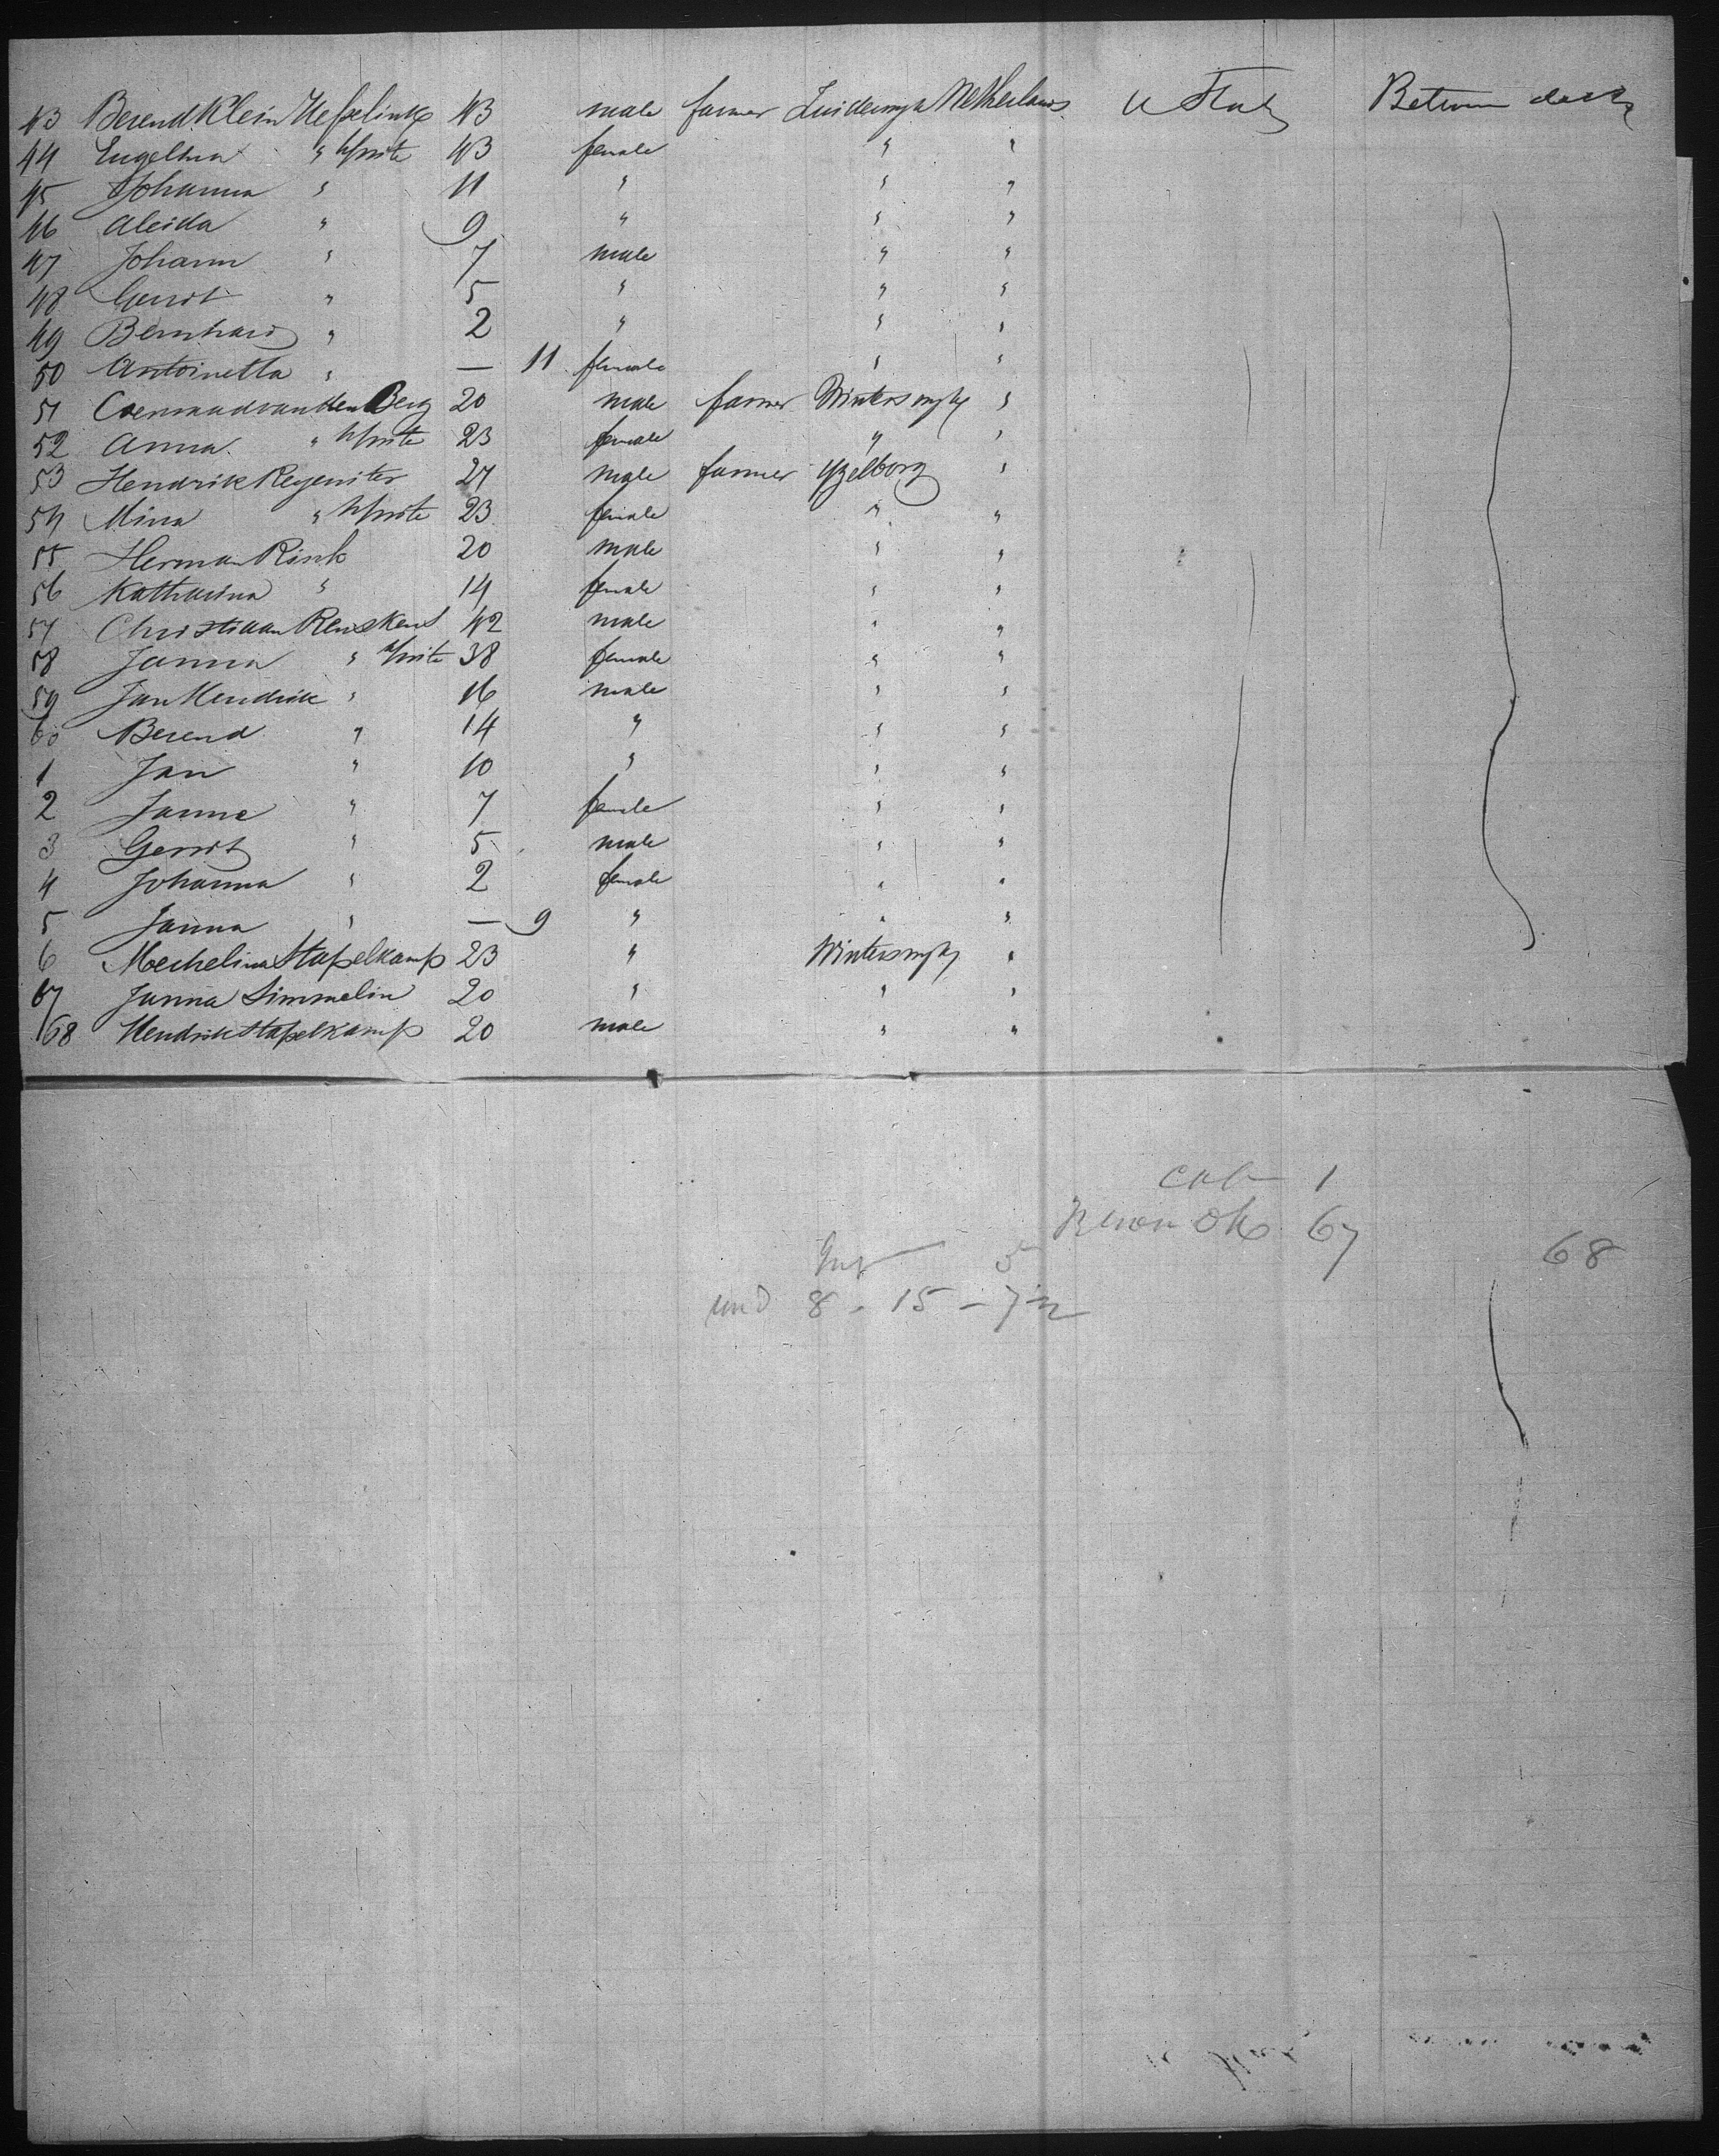 43 Berend Klein Hesselink 43 male farmer Netherlands U States Between decks
44 Engelina " h/wife 43 female " "
45 Johanna " 11 " " "
46 Aleida " 9 " " "
47 Johann " 7 male " "
48 Gerrit " 5 " " "
49 Bernhard " 2 " " "
50 Antoinetta " — 11 female " "
51 Coenraad van den Berg 20 male farmer Winterswyk "
52 Anna " h/wife 23 female " "
53 Hendrik 27 male farmer Yzelborg "
54 Mina " h/wife 23 female " "
55 Herman Risch 20 male " "
56 Katharina " 14 female " "
57 Christiaan Renskens 42 male " "
58 Janna " h/wife 38 female " "
59 Jan Hendrik " 16 male " "
60 Berend " 14 " " "
1 Jan " 10 " " "
2 Janna " 7 female " "
3 Gerrit " 5 male " "
4 Johanna " 2 female " "
5 Janna " — 9 " " "
6 Mechelina Stapelkamp 23 " Winterswyk "
67 Janna Simmelin 20 " " "
68 Hendrik Stapelkamp 20 male " "
cab 1
67
68
Inf 5
und 8 - 15 - 7½